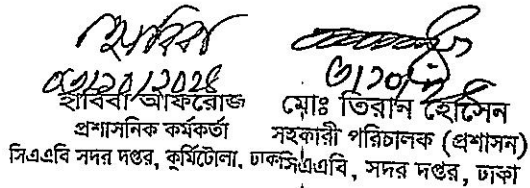 হাবিবা
০৩/১০/২০২৪
হাবিবা আফরোজ
প্রশাসনিক কর্মকর্তা
সিএএবি সদর দপ্তর, কুর্মিটোলা, ঢাকা
মোঃ তিরান হোসেন
সহকারী পরিচালক (প্রশাসন)
সিএএবি, সদর দপ্তর, ঢাকা